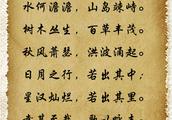 水何澹澹，山岛竦峙。
树木丛生，百草丰茂。
秋风萧瑟，洪波涌起。
日月之行，若出其中；
星汉灿烂，若出其里。